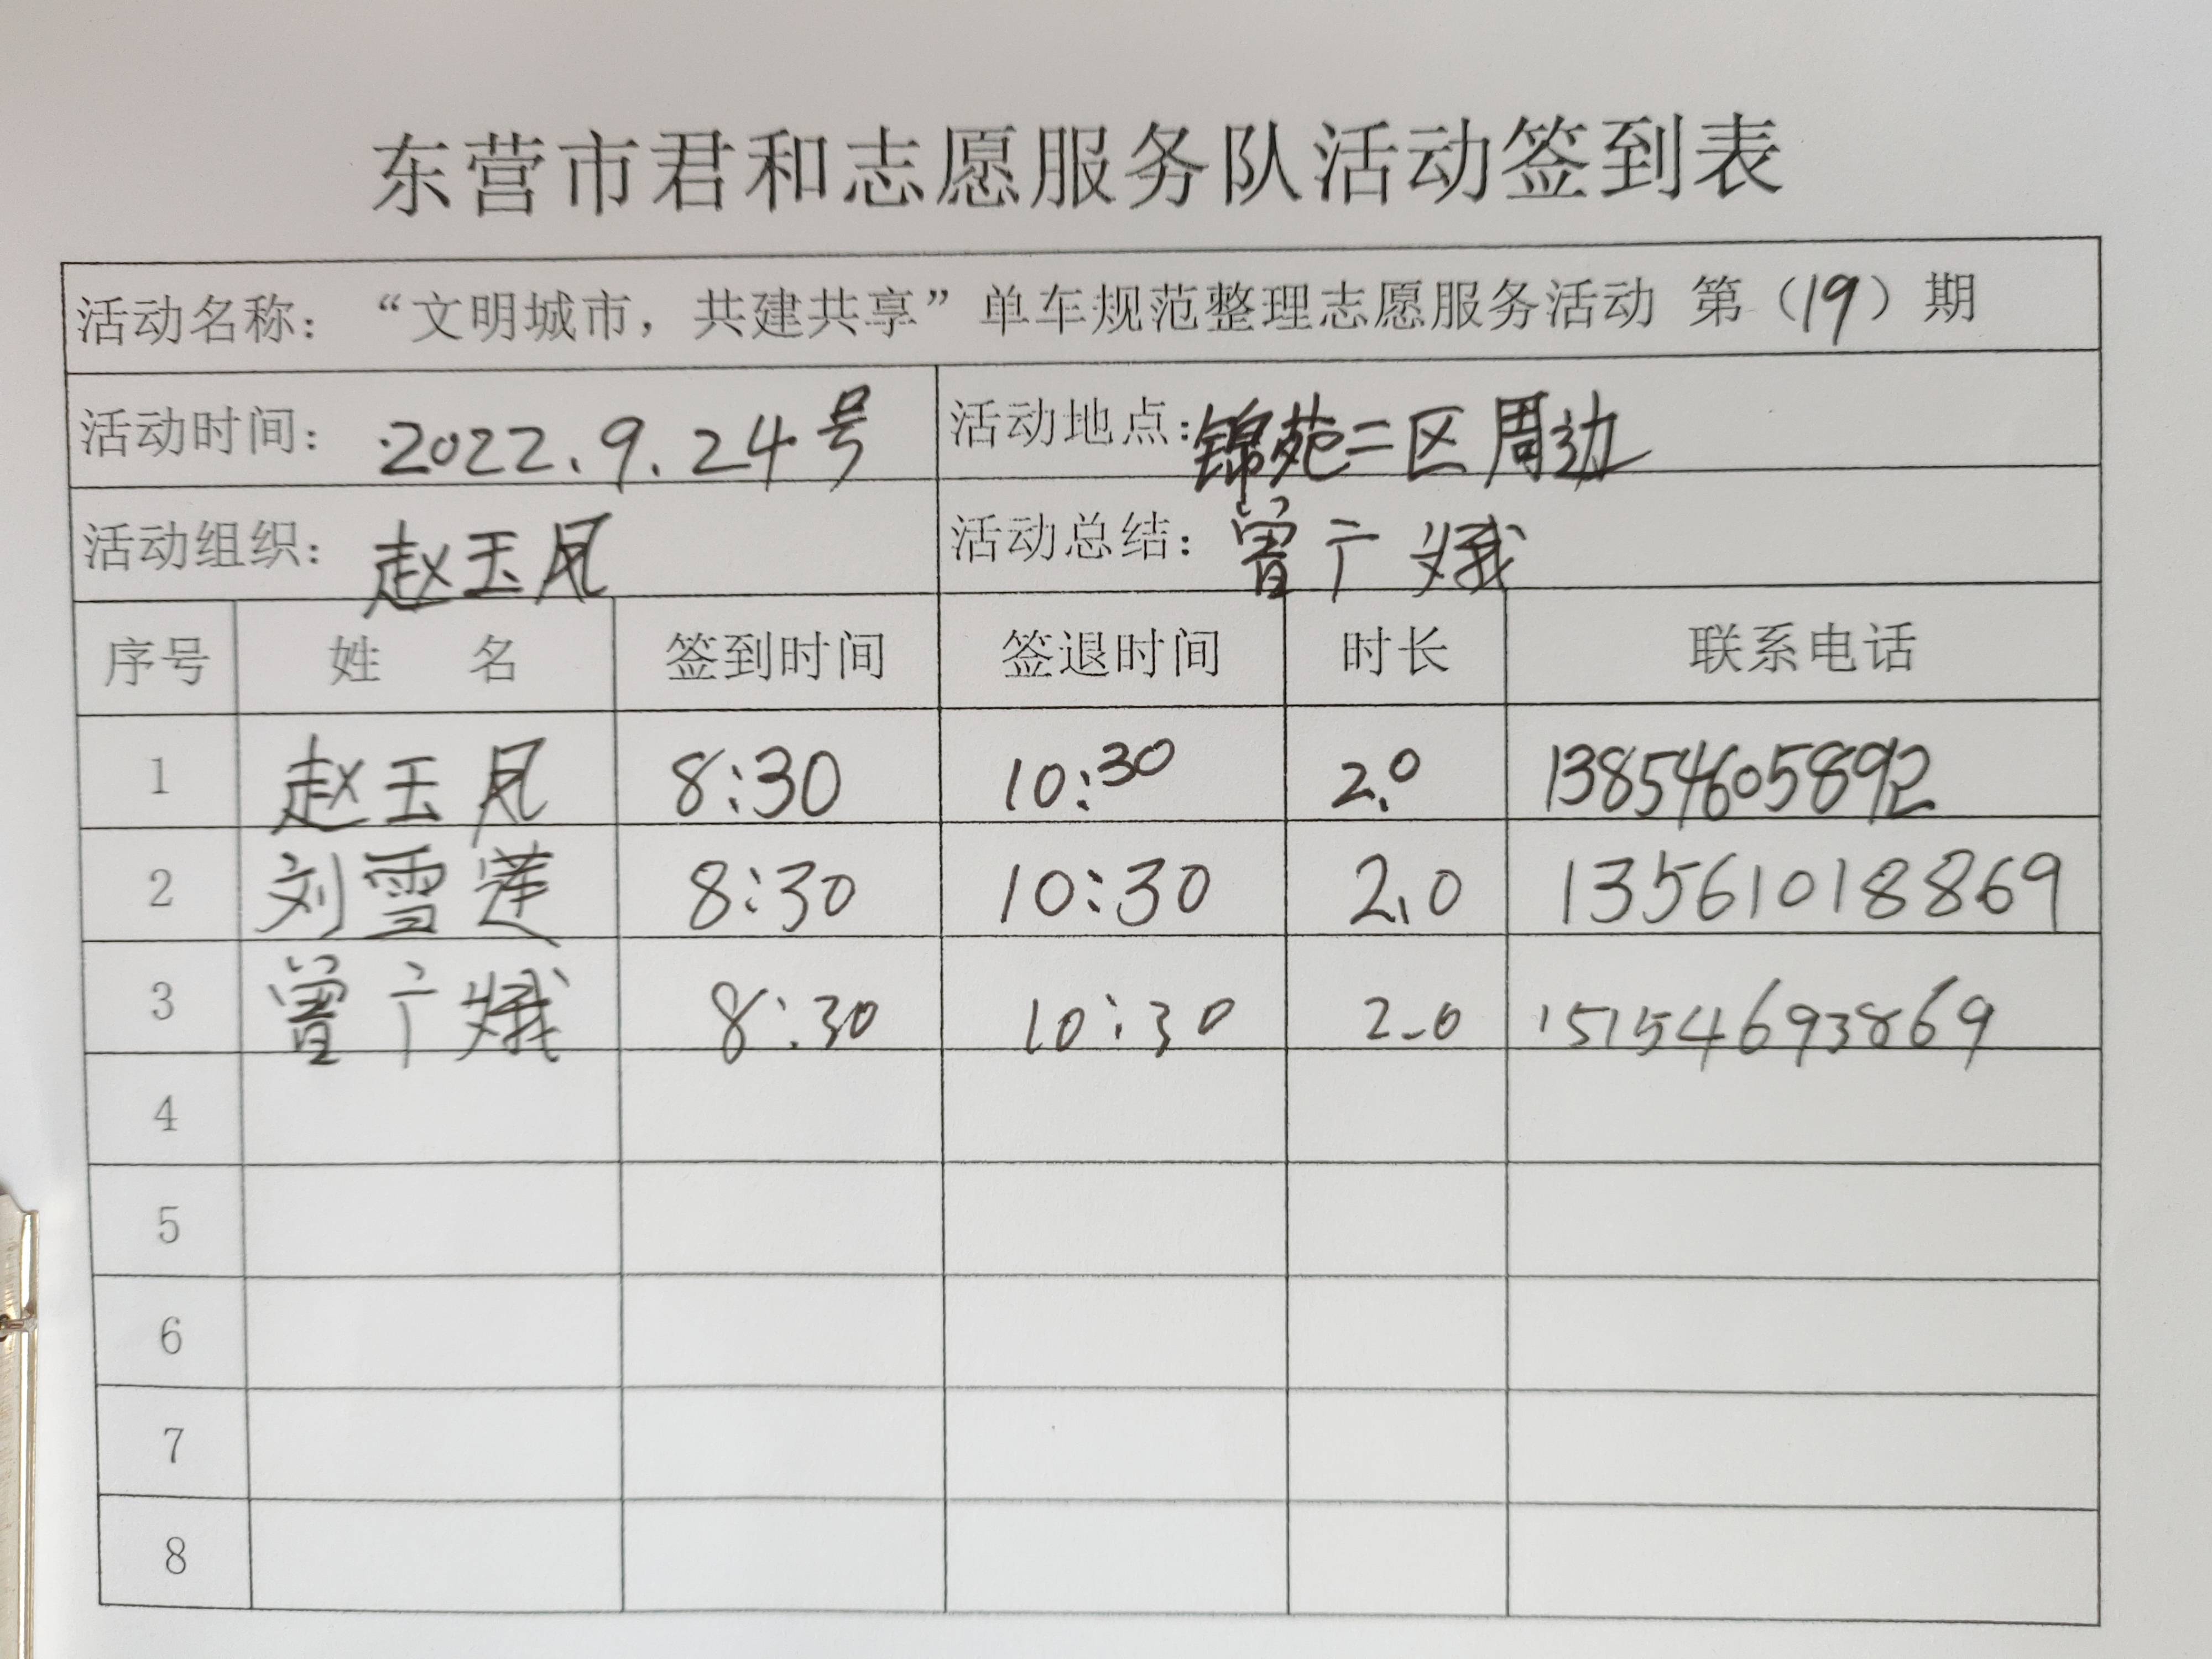 东营市君和志愿服务队活动签到表
活动名称：“文明城市，共建共享”单车规范整理志愿服务活动 第（19）期
活动时间：2022.9.24号 活动地点：锦苑二区周边
活动组织：赵玉凤 活动总结：曾广娥
序号 姓 名 签到时间 签退时间 时长 联系电话
1 赵玉凤 8:30 10:30 2.0 13854605892
2 刘雪莲 8:30 10:30 2.0 13561018869
3 曾广娥 8:30 10:30 2.0 15154693869
4
5
6
7
8